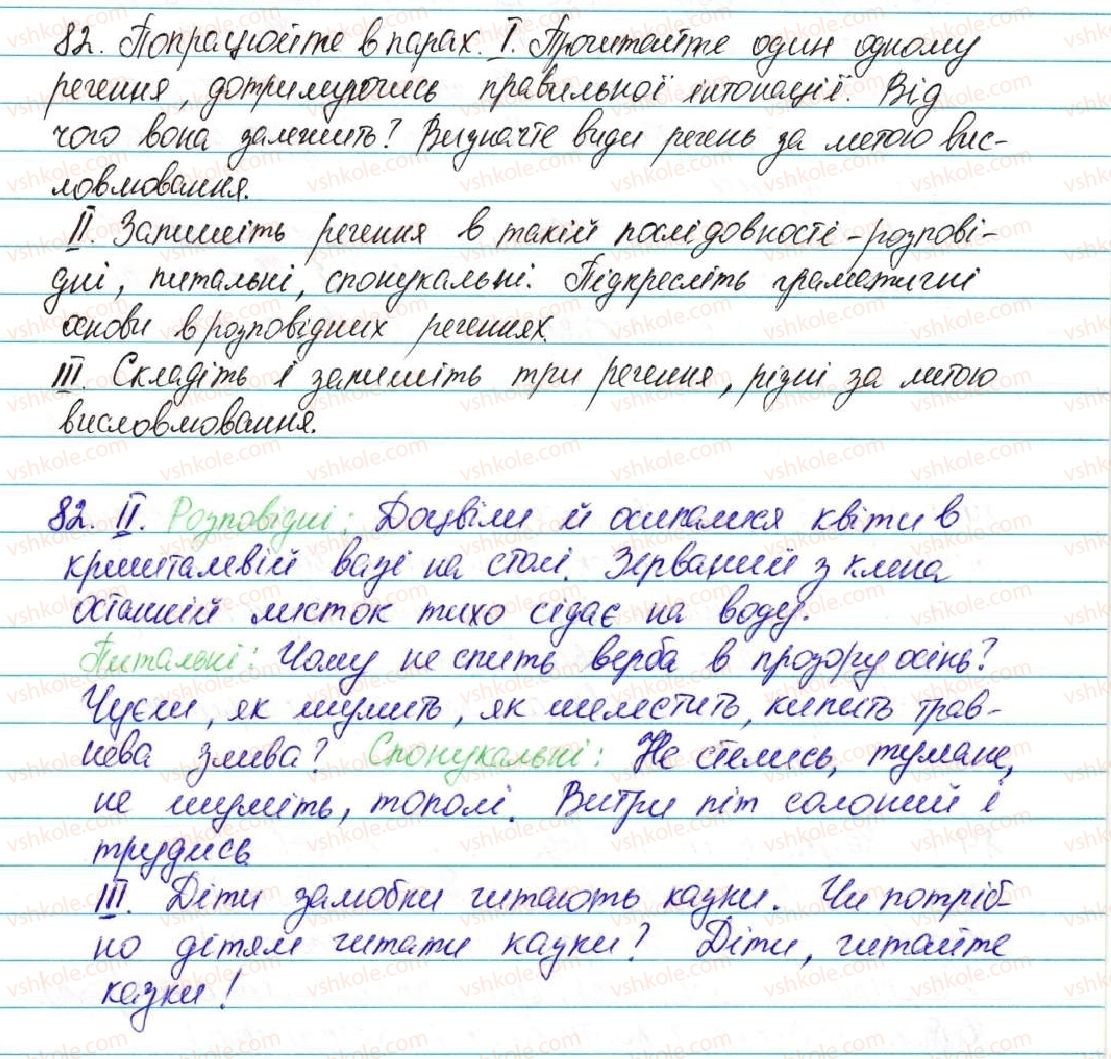 82. Попрацюйте в парах. I. Прочитайте один одному
речення, дотримуючись правильної інтонації. Від
чого вона залежить? Визначте види речень за метою вис-
ловлювання.
II. Запишіть речення в такій послідовності - розпові-
дні, питальні, спонукальні. Підкресліть граматичні
основи в розповідних реченнях.
III. Складіть і запишіть три речення, різні за метою
висловлювання.
82. II. Розповідні: Доцвіли й осипалися квіти в
кришталевій вазі на столі. Зірваний з клена
останній листок тихо сідає на воду.
Питальні: Чому не спить верба в прозору осінь?
Чуєш, як шумить, як шелестить, кипить трав-
нева злива? Спонукальні: Не стелись, тумане,
не шуміть, тополі. Витри піт солоний і
трудись
III. Діти залюбки читають казки. Чи потріб-
но дітям читати казки? Діти, читайте
казки!